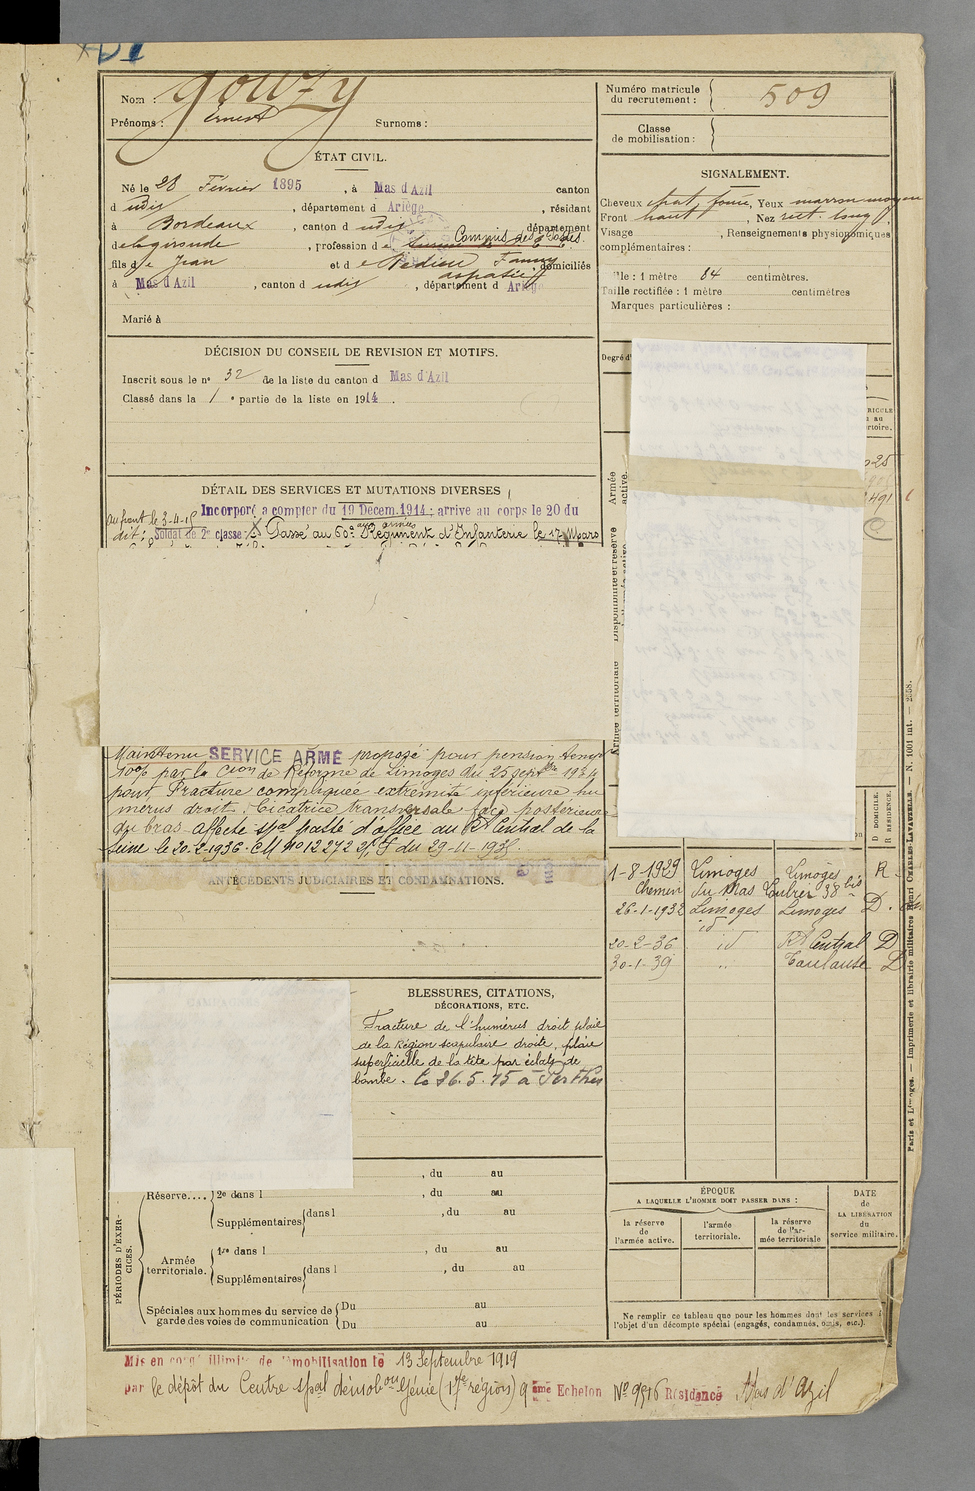 Nom : Gouzy
Prénoms : Ernest Surnoms :
Numéro matricule du recrutement : 509
Classe de mobilisation :
ÉTAT CIVIL.
Né le 28 Février 1895, à Mas d'Azil canton
d udit, département d Ariège, résidant
à Bordeaux, canton d udit, département
d e la gironde, profession d e Commis des Postes.
fils d e Jean et d e Fanny aspasie, domiciliés
à Mas d'Azil, canton d udit, département d Ariège
Marié à
SIGNALEMENT.
Cheveux chat. foncé, Yeux marron moyen
Front haut, Nez rect. long.
Visage , Renseignements physionomiques
complémentaires :
Taille : 1 mètre 84 centimètres.
Taille rectifiée : 1 mètre centimètres
Marques particulières :
DÉCISION DU CONSEIL DE REVISION ET MOTIFS.
Inscrit sous le n° 32 de la liste du canton d Mas d'Azil
Classé dans la 1e partie de la liste en 1914.
Degré d'
DÉTAIL DES SERVICES ET MUTATIONS DIVERSES
Incorporé a compter du 19 Decem. 1914 ; arrive au corps le 20 du
dit ; Soldat de 2e classe. Passé au Régiment d'Infanterie le 17 Mars
aux armées
au front le 3-4-15
Maintenu SERVICE ARMÉ proposé pour pension temp
10% par la Cion de Réforme de Limoges du 25 septbre 1934
pour Fracture compliquée extrémité inférieure hu
merus droit. Cicatrice transversale face postérieure
du bras - affecté spal passé d'office au RA Central de la
Seine le 20-2-1936. CM N° 12272 du 29-11-1935.
ANTÉCÉDENTS JUDICIAIRES ET CONDAMNATIONS.
Armée active.
Disponibilité et réserve
Armée territoriale
D DOMICILE.
R RÉSIDENCE.
1-8-1929 Limoges Limoges R
Chemin du Mas 38 bis
26-1-1932 Limoges Limoges D.
id
20-2-36 id RA Central D
30-1-39 .. Toulouse D
BLESSURES, CITATIONS,
DÉCORATIONS, ETC.
Fracture de l'humérus droit plaie
de la Région scapulaire droite, plaie
superficielle de la tête par éclats de
bombe. le 26.5.15 à Perthes
PÉRIODES D'EXERCICES.
Réserve.... 2e dans l , du au
Supplémentaires dans l , du au
Armée territoriale. 1re dans l , du au
Supplémentaires dans l , du au
Spéciales aux hommes du service de garde des voies de communication
Du au
Du au
ÉPOQUE
A LAQUELLE L'HOMME DOIT PASSER DANS :
la réserve de l'armée active.
l'armée territoriale.
la réserve de l'armée territoriale
DATE de LA LIBÉRATION du service militaire.
Ne remplir ce tableau que pour les hommes dont les services
l'objet d'un décompte spécial (engagés, condamnés, omis, etc.).
Paris et Limoges. — Imprimerie et librairie militaires Henri CHARLES-LAVAUZELLE. — N. 1001 int. — 2558.
Mis en congé illimité de démobilisation le 13 Septembre 1919
par le dépôt du Centre spal démobon Génie (17e région) 9 ème Echelon N° 9916 Résidence Mas d'Azil